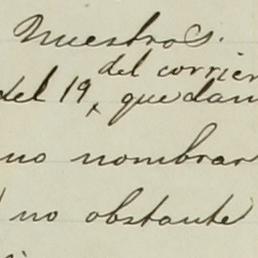 Nuestros.
del corrien
del 19, quedan
no nombrar
no obstante